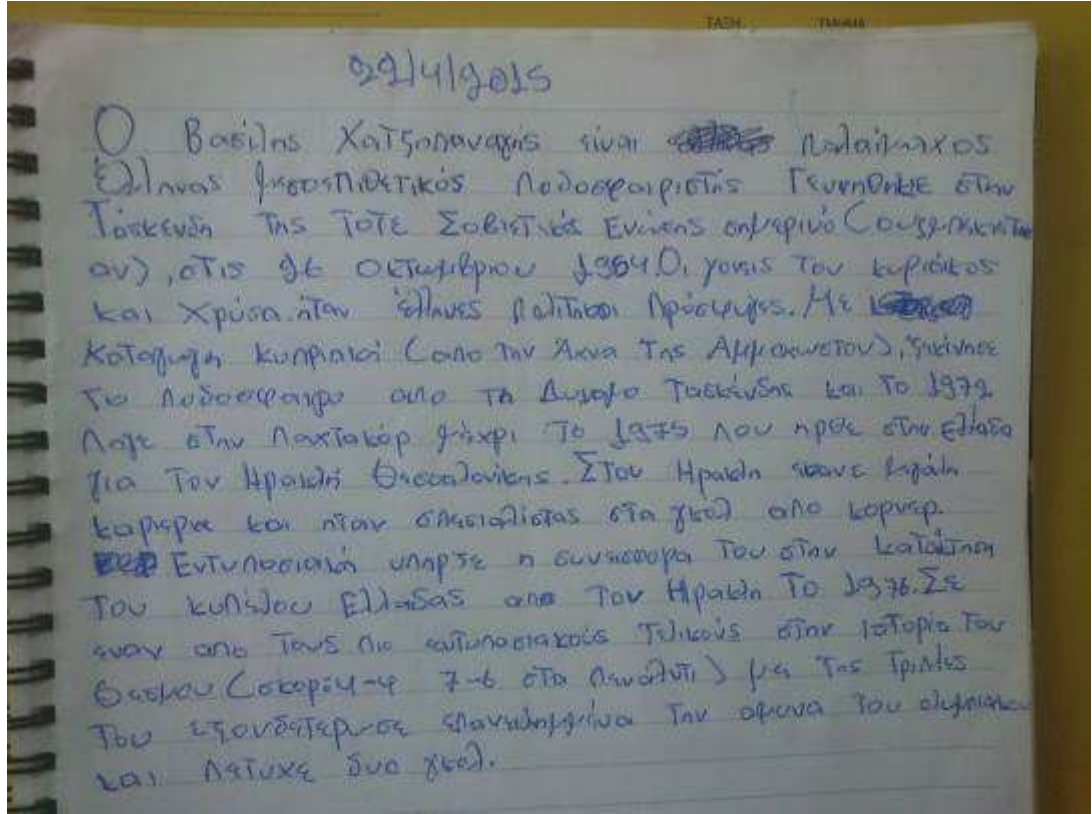 ΤΑΞΗ ΤΜΗΜΑ
22/4/2015
Ο Βασίλης Χατζηπαναγής είναι παλαίμαχος
Έλληνας μεσοεπιθετικός ποδοσφαιριστής Γεννηθηκε στην
Τάσκενδη της τοτε Σοβιετικές Ενώσης σημερινό (Ουζμπεκιστ
αν), στις 26 Οκτωμβριου 1954. Οι γονεις του κυριάκος
και Χρύσα. ήταν έλληνες πολιτικοι πρόσφυγες. Με
καταγωγη κυπριακοί (απο την Άχνα της Αμμοχωστου), ξεκίνησε
το ποδοσφαιρο απο τη Δυναμο Τασκένδης και το 1972
πηγε στην Παχτακόρ μέχρι το 1975 που ηρθε στην Ελλαδα
για τον Ηρακλή Θεσσαλονίκης. Στον Ηρακλη εκανε μεγάλη
καριερα και ηταν σπεσιαλίστας στα γκολ απο κορνερ.
Εντυπασιακή υπηρξε η συνεισφορα του στην κατάκτηση
του κυπέλου Ελλαδας απο τον Ηρακλη το 1976. Σε
εναν απο τους πιο εντυπασιακούς τελικούς στην ιστορία του
θεσμου (σκορ:4-4 7-6 στα πεναλυτι) με τις τριπλες
του εξουδετερωσε επανειλημμένα την αμυνα του ολυμπιακου
και πετυχε δυο γκολ.